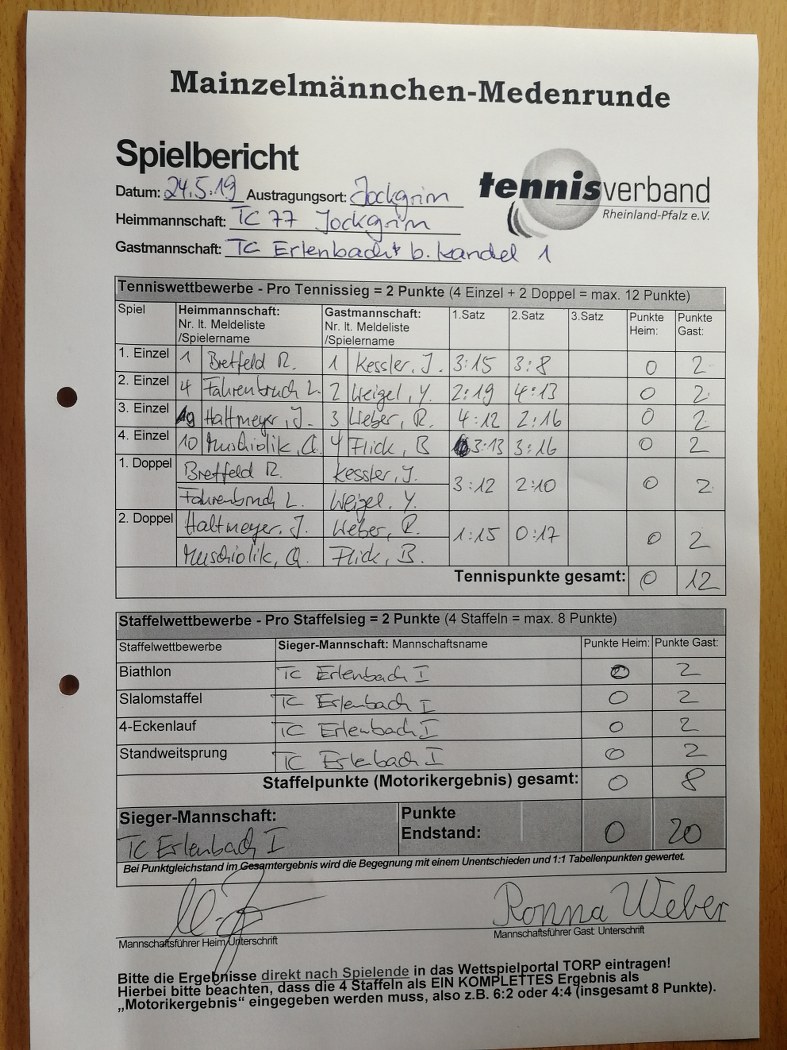 Mainzelmännchen-Medenrunde
Spielbericht
Datum: 24.5.19 Austragungsort: Jockgrim
Heimmannschaft: TC 77 Jockgrim
Gastmannschaft: TC Erlenbach b. Kandel 1
tennisverband
Rheinland-Pfalz e.V.
Tenniswettbewerbe - Pro Tennissieg = 2 Punkte (4 Einzel + 2 Doppel = max. 12 Punkte)
Spiel Heimmannschaft: Nr. lt. Meldeliste /Spielername Gastmannschaft: Nr. lt. Meldeliste /Spielername 1.Satz 2.Satz 3.Satz Punkte Heim: Punkte Gast:
1. Einzel 1 Bretfeld R. 1 Kessler, J. 3:15 3:8 0 2
2. Einzel 4 Fahrenbruch L. 2 Weigel, Y. 2:19 4:13 0 2
3. Einzel 9 Haltmeyer, J. 3 Weber, R. 4:12 2:16 0 2
4. Einzel 10 Muschiolik, Q. 4 Flick, B 3:13 3:16 0 2
1. Doppel Bretfeld R. Kessler, J. 3:12 2:10 0 2
Fahrenbruch L. Weigel, Y.
2. Doppel Haltmeyer, J. Weber, R. 1:15 0:17 0 2
Muschiolik, Q. Flick, B.
Tennispunkte gesamt: 0 12
Staffelwettbewerbe - Pro Staffelsieg = 2 Punkte (4 Staffeln = max. 8 Punkte)
Staffelwettbewerbe Sieger-Mannschaft: Mannschaftsname Punkte Heim: Punkte Gast:
Biathlon TC Erlenbach I 0 2
Slalomstaffel TC Erlenbach I 0 2
4-Eckenlauf TC Erlenbach I 0 2
Standweitsprung TC Erlebach I 0 2
Staffelpunkte (Motorikergebnis) gesamt: 0 8
Sieger-Mannschaft: Punkte
TC Erlenbach I Endstand: 0 20
Bei Punktgleichstand im Gesamtergebnis wird die Begegnung mit einem Unentschieden und 1:1 Tabellenpunkten gewertet.
Ronna Weber
Mannschaftsführer Heim Unterschrift Mannschaftsführer Gast Unterschrift
Bitte die Ergebnisse direkt nach Spielende in das Wettspielportal TORP eintragen!
Hierbei bitte beachten, dass die 4 Staffeln als EIN KOMPLETTES Ergebnis als
„Motorikergebnis“ eingegeben werden muss, also z.B. 6:2 oder 4:4 (insgesamt 8 Punkte).